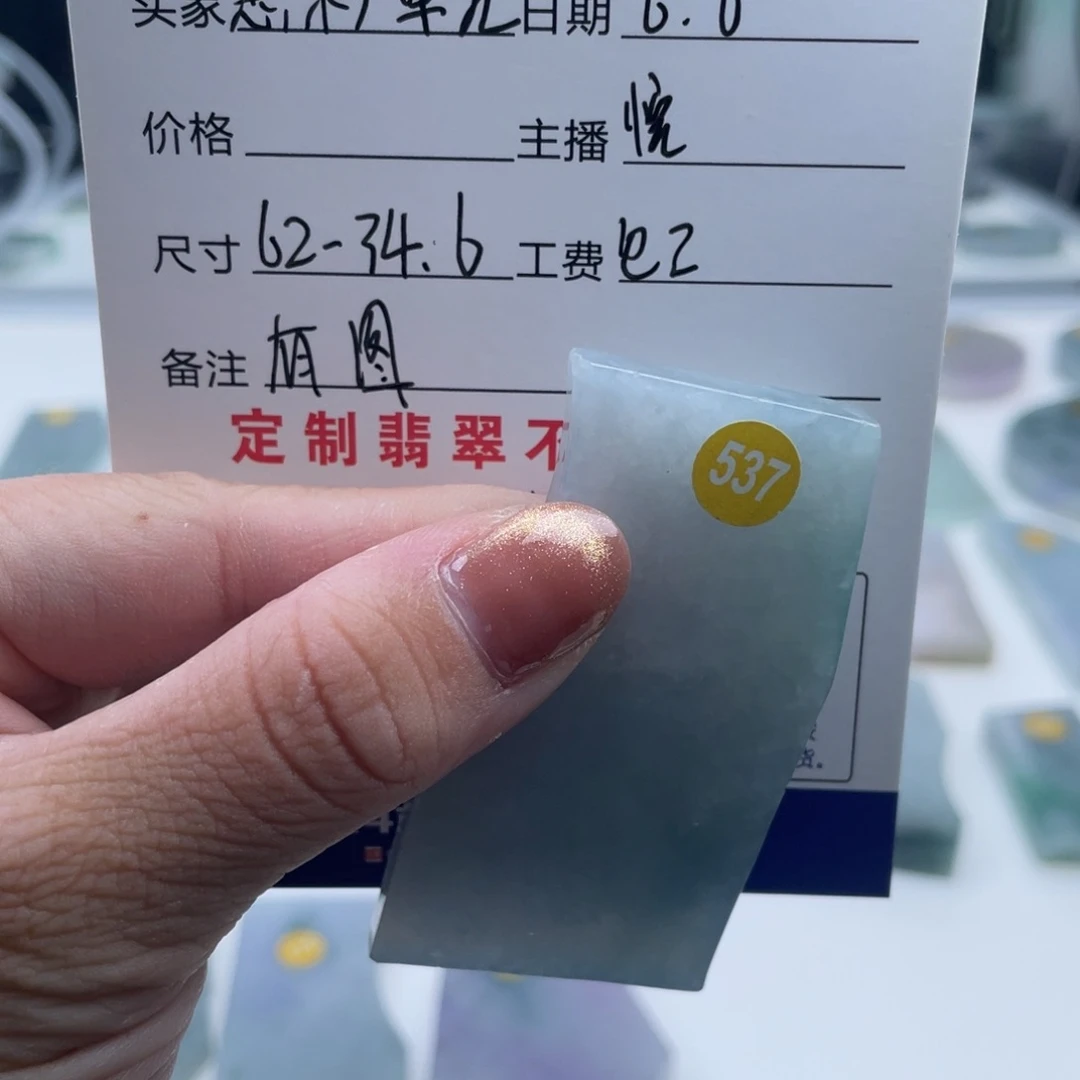 买家 日期 6.6
价格 主播 悦
尺寸 62-34.6 工费 已2
备注 有图
定制翡翠不
537